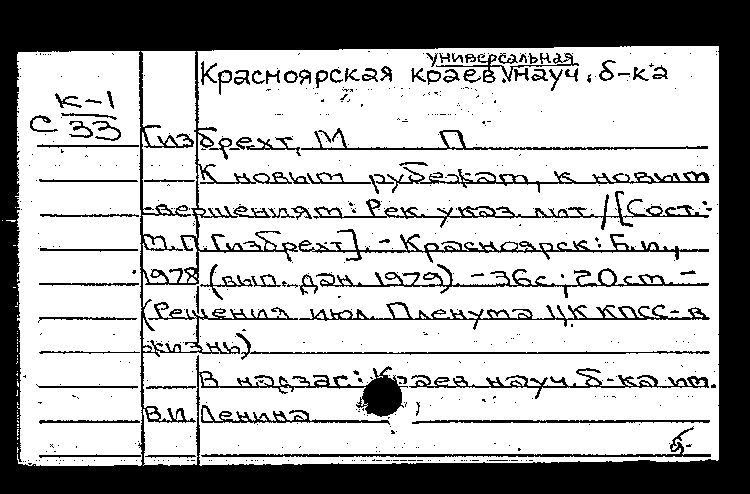 универсальная
Красноярская краев. науч. б-ка
К-1
С 33
Гизбрехт, М П
К новым рубежам, к новым
свершениям: Рек. указ. лит. / [Сост.:
М.П. Гизбрехт]. - Красноярск: Б.и.,
1978 (вып. дан. 1979). - 36с.; 20см. -
(Решения июл. Пленума ЦК КПСС - в
жизнь)
В надзаг: Краев. науч. б-ка им.
В.И. Ленина